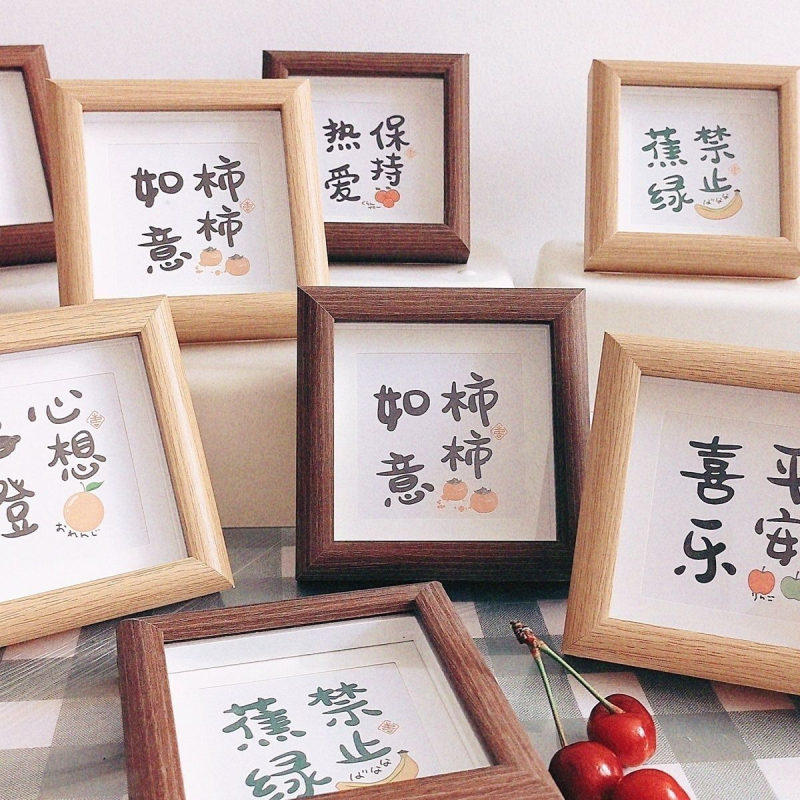 柿柿
如意
保持
热爱
禁止
蕉绿
ばなな
心想
おれんじ
柿柿
如意
平安
喜乐
りんご
禁止
蕉绿
ばなな